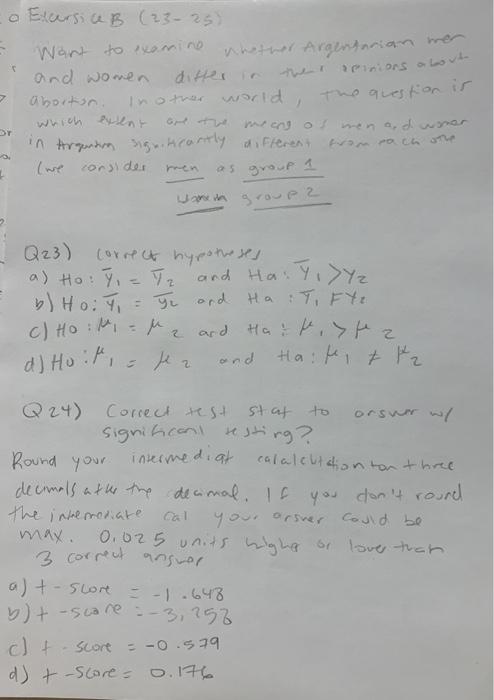 o Excersice B (23-25)
Want to examine whether Argentarian men
and women differ in their opinions about
abortion. In other world, the question is
which extent are the means of men and women
in Argentina significantly different from each one
(we consider men as group 1
women group 2
Q23) correct hypotheses
a) Ho: ȳ1 = ȳ2 and Ha: ȳ1 > y2
b) Ho: ȳ1 = ȳ2 and Ha: ȳ1 ≠ y2
c) Ho: μ1 = μ2 and Ha: μ1 > μ2
d) Ho: μ1 = μ2 and Ha: μ1 ≠ μ2
Q24) Correct test stat to answer w/
significant testing?
Round your intermediat calculation to three
decimals after the decimal. If you don't round
the intermediate cal your answer could be
max. 0.025 units higher or lower than
3 correct answer
a) t-score = -1.648
b) t-score = -3,258
c) t-score = -0.579
d) t-score = 0.176